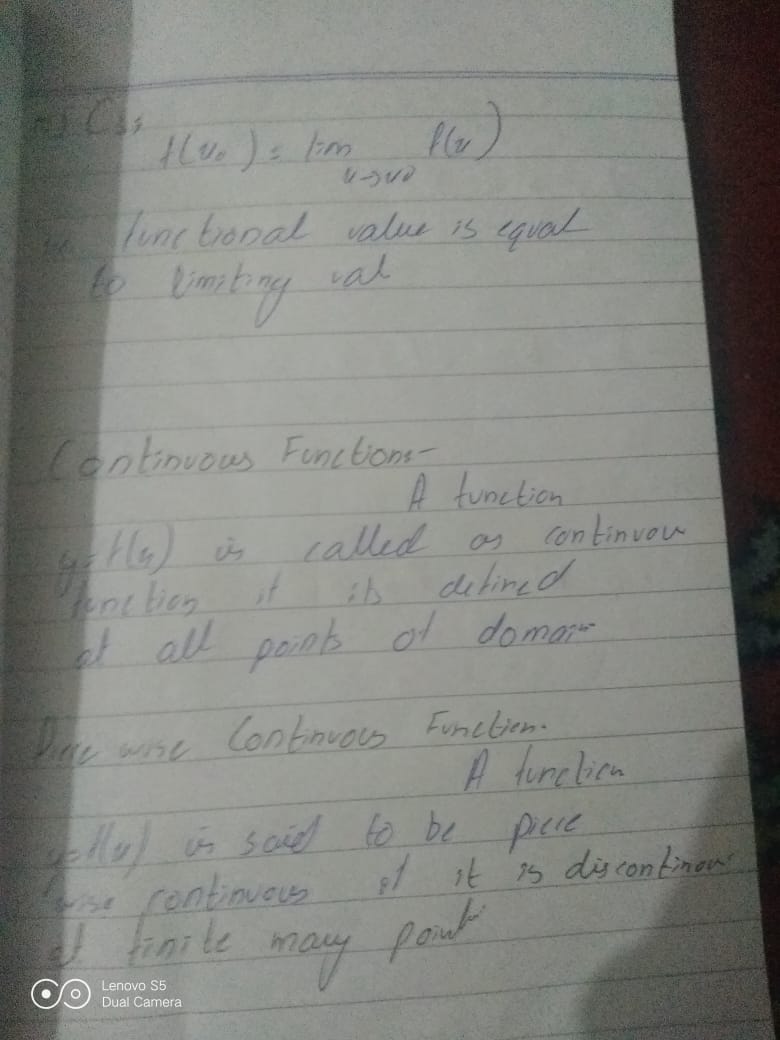 f(x₀) = lim f(x)
x→x0
functional value is equal
to limiting val
Continuous Function:-
A function
y=f(x) is called as continuou
function if its defined
at all points of domain
Piece wise Continuous Function.
A function
y=f(x) is said to be piece
wise continuous if it is discontinou
at finite many point
Lenovo S5
Dual Camera